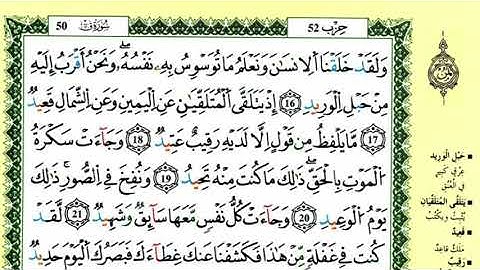 حِزب 52
سُورَةُ قٓ 50
وَلَقَدْ خَلَقْنَا اَ۬لِانسَٰنَ وَنَعْلَمُ مَا تُوَسْوِسُ بِهِۦ نَفْسُهُۥۖ وَنَحْنُ أَقْرَبُ إِلَيْهِ
مِنْ حَبْلِ اِ۬لْوَرِيدِ 16 إِذْ يَتَلَقَّى اَ۬لْمُتَلَقِّيَٰنِ عَنِ اِ۬لْيَمِينِ وَعَنِ اِ۬لشِّمَالِ قَعِيدٌ
17 مَّا يَلْفِظُ مِن قَوْلٍ اِلَّا لَدَيْهِ رَقِيبٌ عَتِيدٌ 18 وَجَآءَتْ سَكْرَةُ
اُ۬لْمَوْتِ بِالْحَقِّۖ ذَٰلِكَ مَا كُنتَ مِنْهُ تَحِيدُ 19 وَنُفِخَ فِے اِ۬لصُّورِۖ ذَٰلِكَ
يَوْمُ اُ۬لْوَعِيدِ 20 وَجَآءَتْ كُلُّ نَفْسٍ مَّعَهَا سَآئِقٌ وَشَهِيدٌ 21 لَّقَدْ
كُنتَ فِے غَفْلَةٍ مِّنْ هَٰذَا فَكَشَفْنَا عَنكَ غِطَآءَكَ فَبَصَرُكَ اَ۬لْيَوْمَ حَدِيدٌ
حَبْلِ الْوَرِيدِ
عِرْقٍ كَبِيرٍ
فِي الْعُنُقِ
يَتَلَقَّى الْمُتَلَقِّيَانِ
يُثْبِتُ وَيَكْتُبُ
قَعِيدٌ
مَلَكٌ قَاعِدٌ
رَقِيبٌ